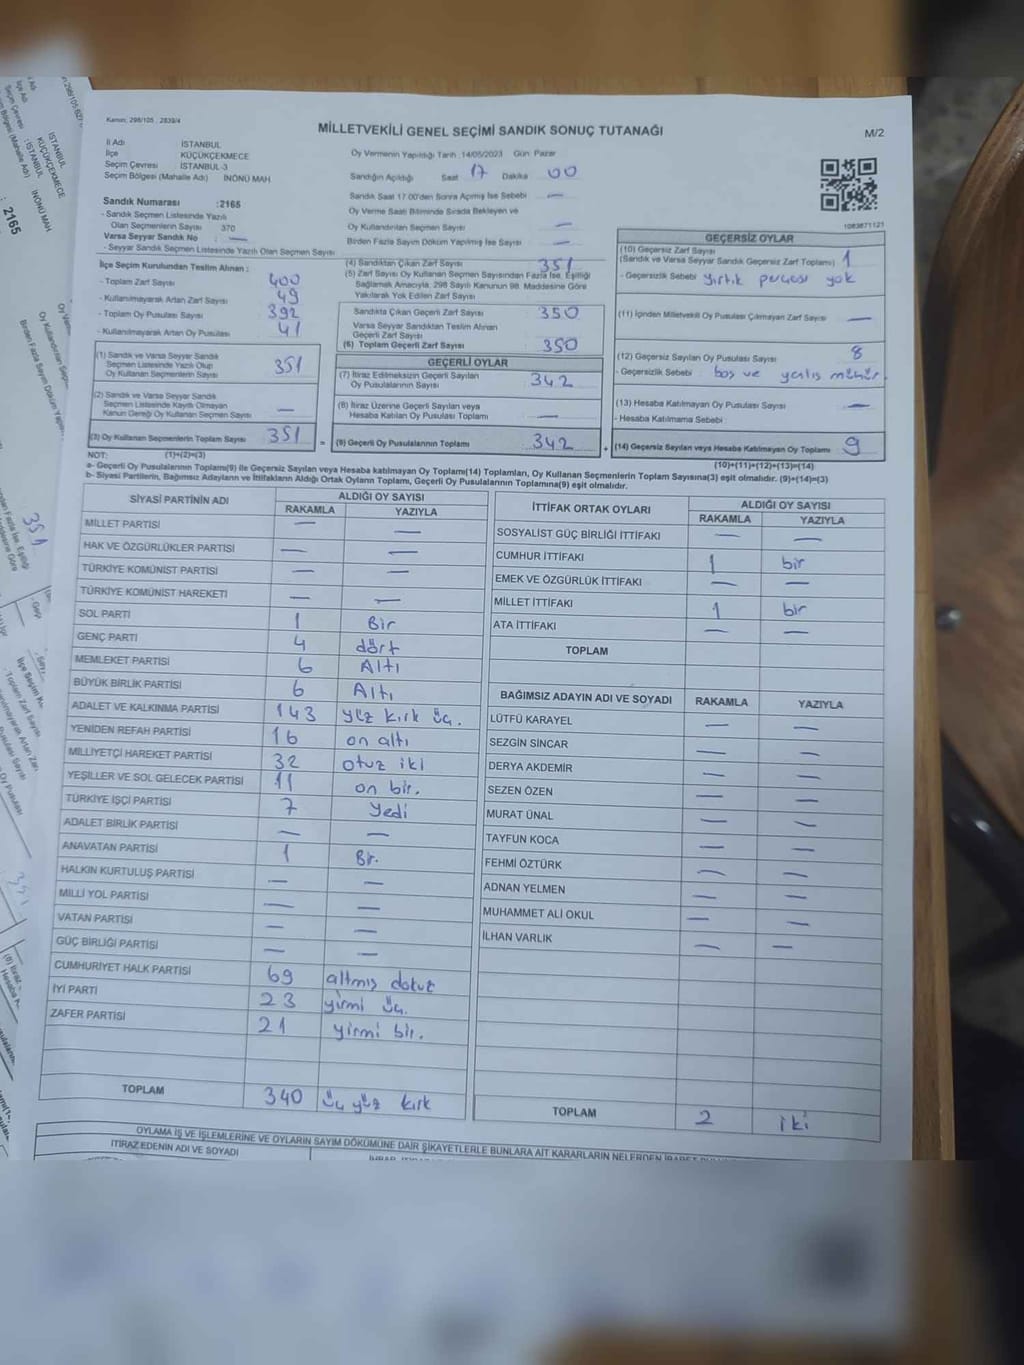 Kanun: 298/105 , 2839/4
MİLLETVEKİLİ GENEL SEÇİMİ SANDIK SONUÇ TUTANAĞI
M/2
İl Adı : İSTANBUL
İlçe : KÜÇÜKÇEKMECE
Seçim Çevresi : İSTANBUL-3
Seçim Bölgesi (Mahalle Adı) : İNÖNÜ MAH
Sandık Numarası :2165
- Sandık Seçmen Listesinde Yazılı
Olan Seçmenlerin Sayısı 370
Varsa Seyyar Sandık No : —
- Seyyar Sandık Seçmen Listesinde Yazılı Olan Seçmen Sayısı
Oy Vermenin Yapıldığı Tarih :14/05/2023 Gün: Pazar
Sandığın Açıldığı Saat 17 Dakika 00
Sandık Saat 17.00'den Sonra Açılmış İse Sebebi —
Oy Verme Saati Bitiminde Sırada Bekleyen ve
Oy Kullandırılan Seçmen Sayısı —
Birden Fazla Sayım Döküm Yapılmış İse Sayısı —
1083871121
İlçe Seçim Kurulundan Teslim Alınan :
- Toplam Zarf Sayısı 400
- Kullanılmayarak Artan Zarf Sayısı 49
- Toplam Oy Pusulası Sayısı 392
- Kullanılmayarak Artan Oy Pusulası 41
(1) Sandık ve Varsa Seyyar Sandık
Seçmen Listesinde Yazılı Olup
Oy Kullanan Seçmenlerin Sayısı 351
(2) Sandık ve Varsa Seyyar Sandık
Seçmen Listesinde Kayıtlı Olmayan
Kanun Gereği Oy Kullanan Seçmen Sayısı —
(3) Oy Kullanan Seçmenlerin Toplam Sayısı 351 =
(4) Sandıktan Çıkan Zarf Sayısı 351
(5) Zarf Sayısı Oy Kullanan Seçmen Sayısından Fazla İse, Eşitliği
Sağlamak Amacıyla, 298 Sayılı Kanunun 98. Maddesine Göre
Yakılarak Yok Edilen Zarf Sayısı
Sandıkta Çıkan Geçerli Zarf Sayısı 350
Varsa Seyyar Sandıktan Teslim Alınan
Geçerli Zarf Sayısı
(6) Toplam Geçerli Zarf Sayısı 350
GEÇERLİ OYLAR
(7) İtiraz Edilmeksizin Geçerli Sayılan
Oy Pusulalarının Sayısı 342
(8) İtiraz Üzerine Geçerli Sayılan veya
Hesaba Katılan Oy Pusulası Toplamı —
(9) Geçerli Oy Pusulalarının Toplamı 342 +
GEÇERSİZ OYLAR
(10) Geçersiz Zarf Sayısı
(Sandık ve Varsa Seyyar Sandık Geçersiz Zarf Toplamı) 1
- Geçersizlik Sebebi Yırtık parçası yok
(11) İçinden Milletvekili Oy Pusulası Çıkmayan Zarf Sayısı —
(12) Geçersiz Sayılan Oy Pusulası Sayısı 8
- Geçersizlik Sebebi boş ve yalış mühür
(13) Hesaba Katılmayan Oy Pusulası Sayısı —
- Hesaba Katılmama Sebebi
(14) Geçersiz Sayılan veya Hesaba Katılmayan Oy Toplamı 9
NOT: (1)+(2)=(3)
(10)+(11)+(12)+(13)=(14)
a- Geçerli Oy Pusulalarının Toplamı(9) ile Geçersiz Sayılan veya Hesaba katılmayan Oy Toplamı(14) Toplamları, Oy Kullanan Seçmenlerin Toplam Sayısına(3) eşit olmalıdır. (9)+(14)=(3)
b- Siyasi Partilerin, Bağımsız Adayların ve İttifakların Aldığı Ortak Oyların Toplamı, Geçerli Oy Pusulalarının Toplamına(9) eşit olmalıdır.
SİYASİ PARTİNİN ADI ALDIĞI OY SAYISI
RAKAMLA YAZIYLA
MİLLET PARTİSİ — —
HAK VE ÖZGÜRLÜKLER PARTİSİ — —
TÜRKİYE KOMÜNİST PARTİSİ — —
TÜRKİYE KOMÜNİST HAREKETİ — —
SOL PARTİ 1 Bir
GENÇ PARTİ 4 dört
MEMLEKET PARTİSİ 6 Altı
BÜYÜK BİRLİK PARTİSİ 6 Altı
ADALET VE KALKINMA PARTİSİ 143 yüz kırk üç.
YENİDEN REFAH PARTİSİ 16 on altı
MİLLİYETÇİ HAREKET PARTİSİ 32 otuz iki
YEŞİLLER VE SOL GELECEK PARTİSİ 11 on bir.
TÜRKİYE İŞÇİ PARTİSİ 7 Yedi
ADALET BİRLİK PARTİSİ — —
ANAVATAN PARTİSİ 1 Bir.
HALKIN KURTULUŞ PARTİSİ — —
MİLLİ YOL PARTİSİ — —
VATAN PARTİSİ — —
GÜÇ BİRLİĞİ PARTİSİ — —
CUMHURİYET HALK PARTİSİ 69 altmış dokuz
İYİ PARTİ 23 yirmi üç.
ZAFER PARTİSİ 21 yirmi bir.
TOPLAM 340 üç yüz kırk
İTTİFAK ORTAK OYLARI ALDIĞI OY SAYISI
RAKAMLA YAZIYLA
SOSYALİST GÜÇ BİRLİĞİ İTTİFAKI — —
CUMHUR İTTİFAKI 1 bir
EMEK VE ÖZGÜRLÜK İTTİFAKI — —
MİLLET İTTİFAKI 1 bir
ATA İTTİFAKI — —
TOPLAM
BAĞIMSIZ ADAYIN ADI VE SOYADI RAKAMLA YAZIYLA
LÜTFÜ KARAYEL — —
SEZGİN SİNCAR — —
DERYA AKDEMİR — —
SEZEN ÖZEN — —
MURAT ÜNAL — —
TAYFUN KOCA — —
FEHMİ ÖZTÜRK — —
ADNAN YELMEN — —
MUHAMMET ALİ OKUL — —
İLHAN VARLIK — —
TOPLAM 2 iki
OYLAMA İŞ VE İŞLEMLERİNE VE OYLARIN SAYIM DÖKÜMÜNE DAİR ŞİKAYETLERLE BUNLARA AİT KARARLARIN NELERDEN İBARET
İTİRAZ EDENİN ADI VE SOYADI
İSTANBUL
KÜÇÜKÇEKMECE
İSTANBUL
İNÖNÜ MAH
2165
351